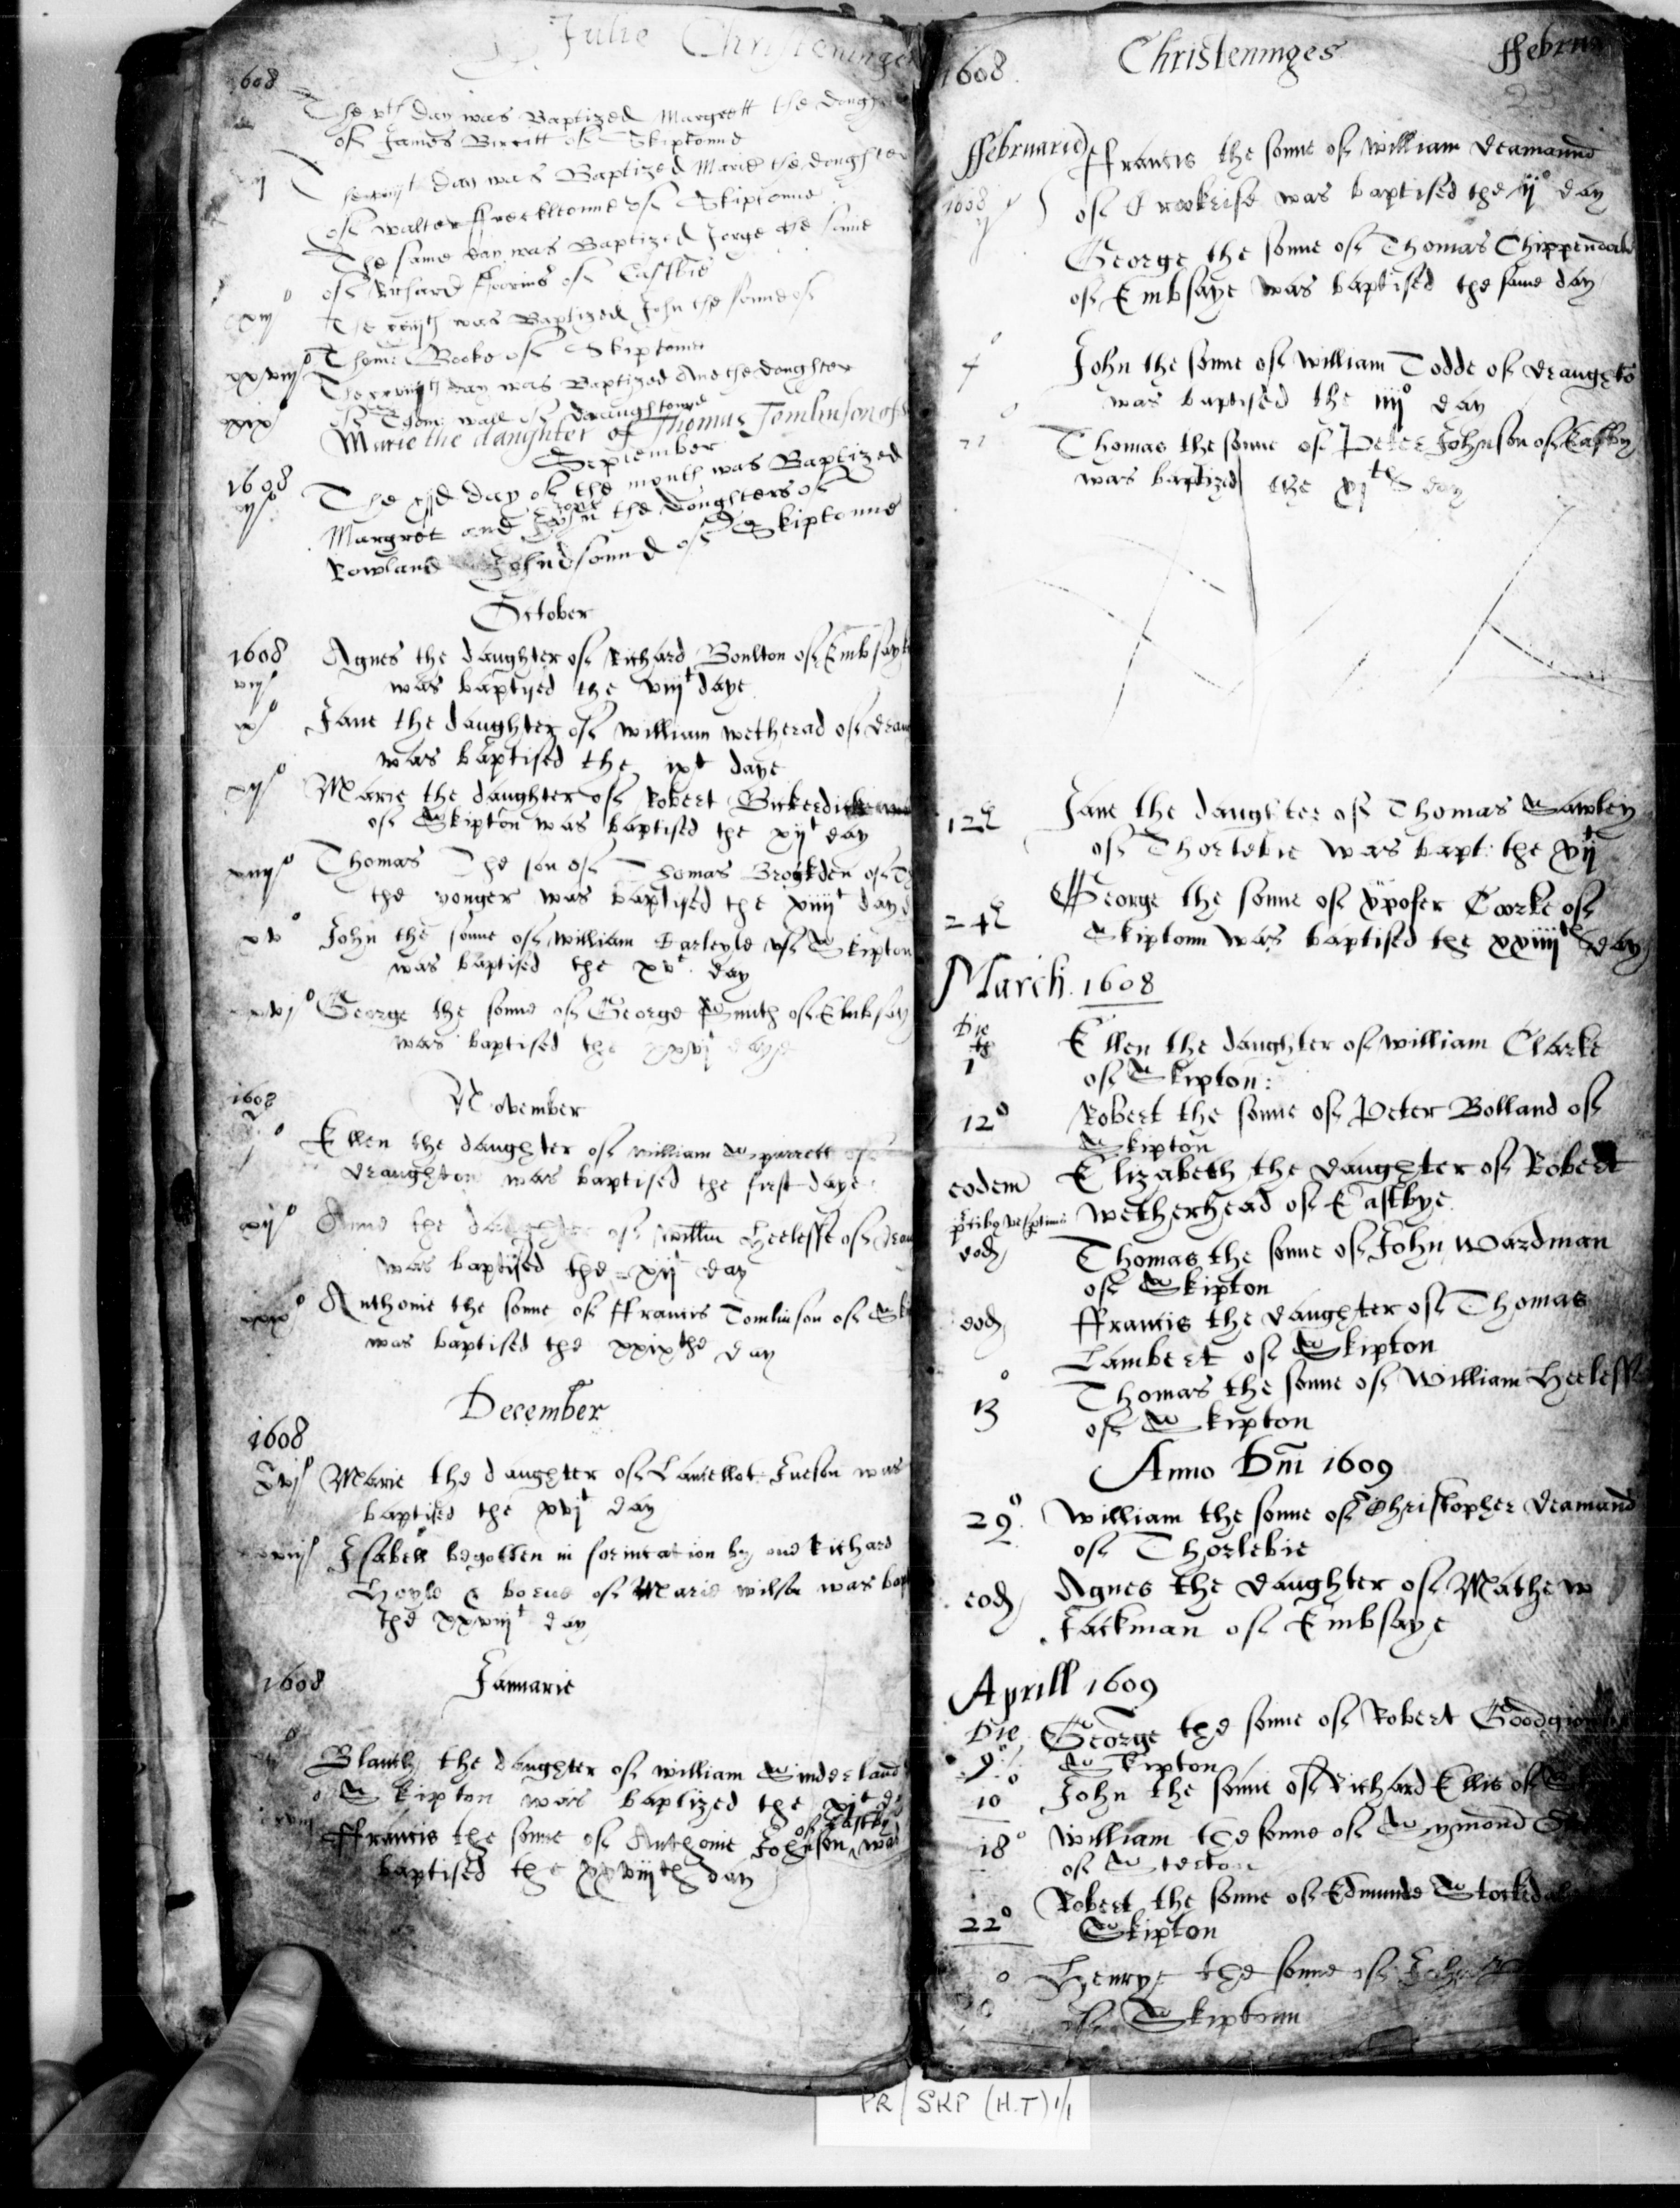 Julie Christeninges
1608
The vth day was Baptized Margrett the dough
of James Birritt of Skiptonne
day was Baptized Marie the doughter
of walter ffreckltonne of Skiptonne
The same day was Baptized Jorge the sonne
of Richard of Eastbie
The was Baptized John the sonne of
Thom Booke of Skiptonn
xxviijo The xxviijth day was Baptized the doughter
of Thom wall of draughtonne
xxix Marie the daughter of Thomas Tomlinson of
September
1608
The ijd day of the month was Baptized
Margret and the doughters of
Rowland Johndsonnd of Skiptonne
October
1608 Agnes the daughter of Richard Boulton of Embsay
viijo was baptised the viijt daye
Jane the daughter of william wetherad of drau
was baptised the ixt daye
xijo Marie the daughter of Robert Birkerdicke
of Skipton was baptised the xijt day
xiiijo Thomas The son of Thomas Brogkden of
the yonger was baptised the xiiijt day
xvo John the sonne of william Carleyle of Skipton
was baptised the xvt day
George the sonne of George Smith of Embsay
was baptised the xxvjt daye
1608 November
Ellen the daughter of william
draughton was baptised the first daye
xijo Anne the daughter of willm Heelesse of drau
was baptised the xijt day
xxixo Anthonie the sonne of ffrancis Tomlinson of Sk
was baptised the xxixthe day
December
1608
xvjo Marie the daughter of Lancellot Jueson was
baptised the xvjt day
Isabell begotten in fornication by one Richard
Hoyle & borne of Marie wilson was bap
the xxviijt day
1608 Januarie
Blanch the daughter of william Sunderland
of Skipton was baptized the xjt d
of Eastby
ffrancis the sonne of Anthonie Johnson was
baptised the xxviijth day
1608 Christeninges ffebrua
23
ffebruarie ffrancis the sonne of william deamannd
1608 of Crookrise was baptised the ijo day
George the sonne of Thomas Chippendale
of Embsaye was baptised the same day
4o John the sonne of william Todde of draughto
was baptised the iiijo day
Thomas the sonne of Peter Johnson of Easby
was baptized the xjth day
12th Jane the daughter of Thomas Sawley
of Thorlebie was bapt: the xijt
24th George the sonne of xpofer Corke of
Skiptonn was baptised the xxiiijth day
March. 1608
Die
1 Ellen the daughter of william Clarke
of Skipton:
12o Robert the sonne of Peter Bolland of
Skipton
eodem Elizabeth the daughter of Robert
wetherhead of Eastbye
eod Thomas the sonne of John Wardman
of Skipton
eod ffrancis the daughter of Thomas
Lambert of Skipton
13o Thomas the sonne of William Heeless
of Skipton
Anno Dm̄ 1609
29o William the sonne of Christopher deamand
of Thorlebie
eod Agnes the daughter of Mathew
Jackman of Embsaye
Aprill 1609
Die George the sonne of Robert
9o Skipton
10o John the sonne of Richard Ellis of
18o William the sonne of Symond
of Sterton
Robert the sonne of Edmunde
22o Skipton
Henrye the sonne of John
of Skiptonn
PR/SKP (H.T) 1/1